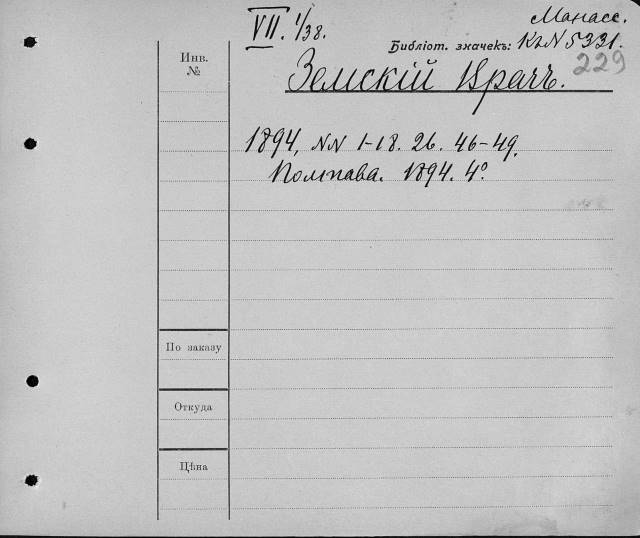 VII. 1/38.
Манасс.
Библіот. значекъ: К2N 5331.
229
Инв.
№
Земскій Врачъ.
1894, NN 1-18. 26. 46-49.
Полтава. 1894. 4°.
По заказу
Откуда
Цѣна